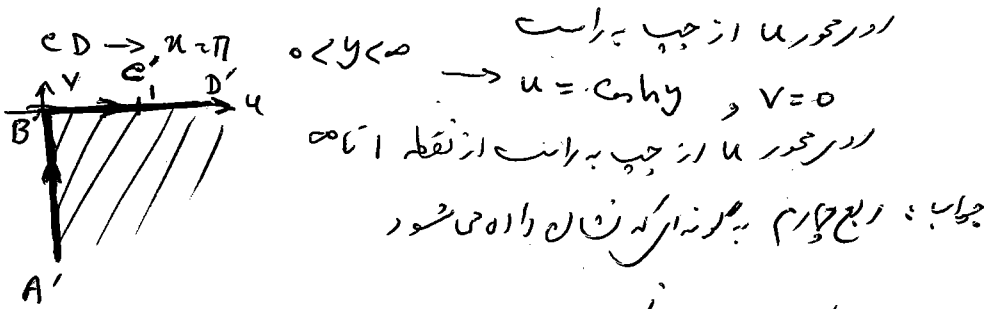 روی محور u از چپ به راست
CD → x=π   0<y<∞ → u = coshy و v=0
روی محور u از چپ به راست از نقطه 1 تا ∞
جواب : ربع چهارم به گونه‌ای که نشان داده می شود
V
C'
D'
1
u
B'
A'